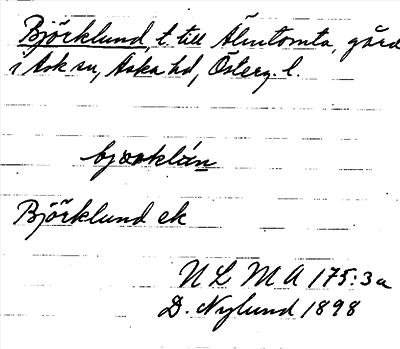 Björklund, t. till Älmtomta, gård
i Ask sn, Aska hd, Österg. l.
bjœrklán
Björklund ek
N L M A 175:3a
D. Nylund 1898